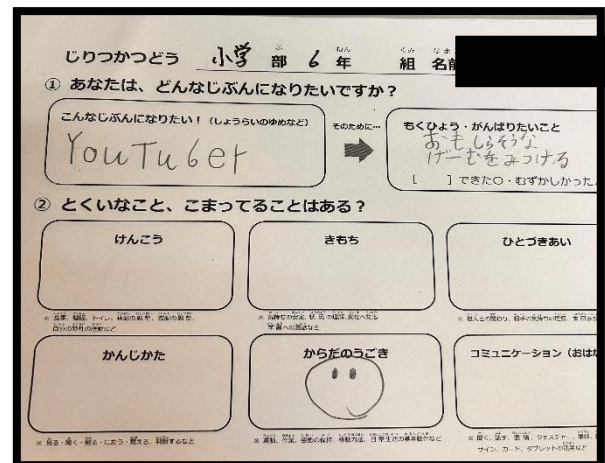 じりつかつどう 小学部 6年 組 名前
① あなたは、どんなじぶんになりたいですか？
こんなじぶんになりたい！（しょうらいのゆめなど）
YouTuber
そのために…
もくひょう・がんばりたいこと
おもしろそうな
げーむをみつける
[ ] できた〇・むずかしかった
② とくいなこと、こまってることはある？
けんこう
きもち
ひとづきあい
かんじかた
からだのうごき
コミュニケーション（おはな
※ 見る・聞く・触る・におう・覚える、判断するなど
※ 運動、作業、姿勢の保持、移動方法、日常生活の基本動作など
※ 聞く、話す、表情、ジェスチャー、
サイン、カード、タブレットの活用など